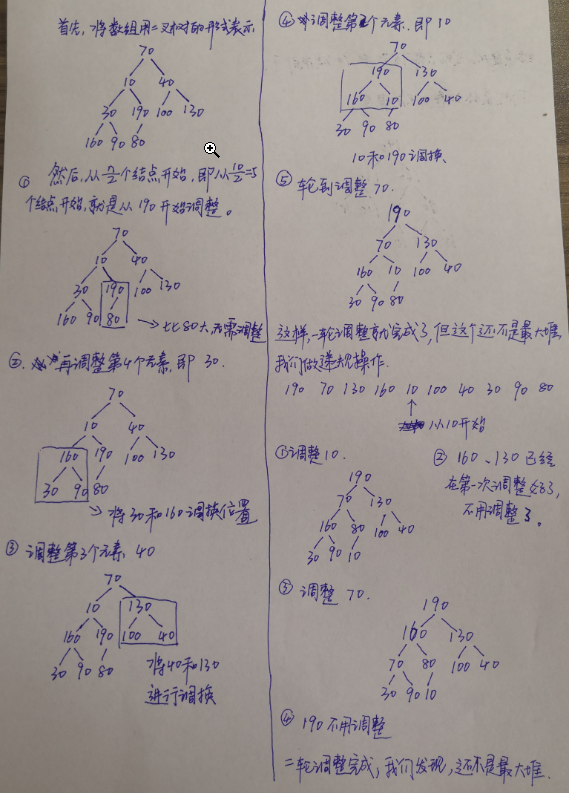 首先，将数组用二叉树的形式表示
70
10 40
30 190 100 130
160 90 80
① 然后，从n/2个结点开始，即从10/2=5
个结点开始，就是从190开始调整。
70
10 40
30 190 100 130
160 90 80
→比80大，无需调整
②. 再调整第4个元素，即30.
70
10 40
160 190 100 130
30 90 80
→将30和160调换位置
③ 调整第3个元素 40
70
10 130
160 190 100 40
30 90 80
将40和130
进行调换
④ 调整第2个元素.即10
70
190 130
160 10 100 40
30 90 80
10和190调换
⑤ 轮到调整70.
190
70 130
160 10 100 40
30 90 80
这样，一轮调整就完成了，但这个还不是最大堆
我们做递规操作.
190 70 130 160 10 100 40 30 90 80
↑
从10开始
①调整10.
190
70 130
160 80 100 40
30 90 10
② 160、130已经
在第一次调整好了，
不用调整了。
③ 调整 70.
190
160 130
70 80 100 40
30 90 10
④ 190不用调整
二轮调整完成，我们发现，还不是最大堆.